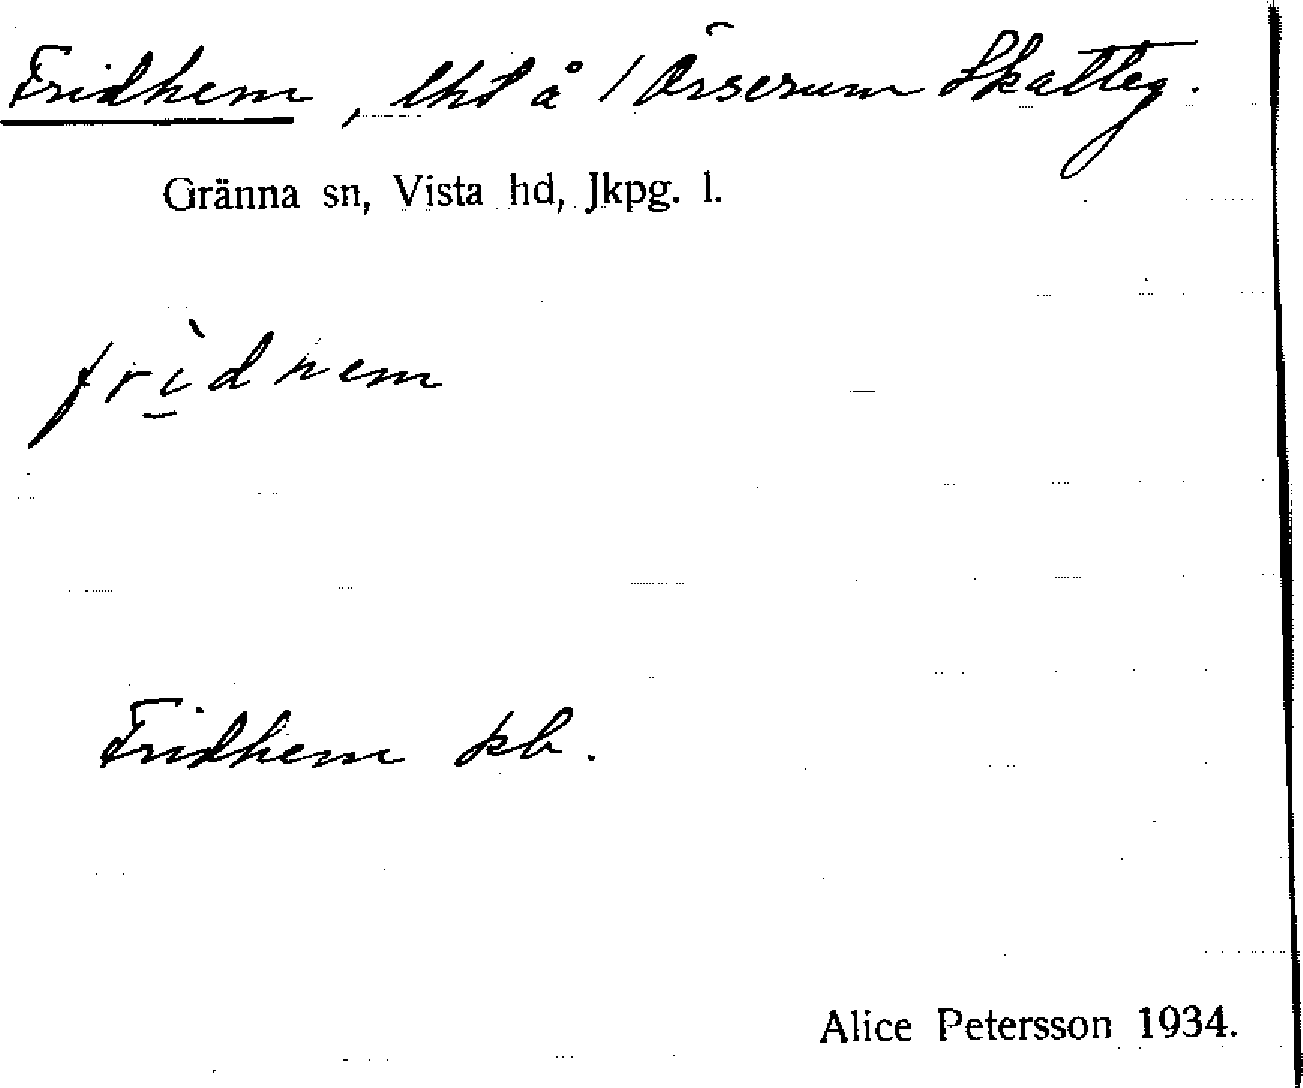 Fridhem, lht å 1 Örserum Skatteg.
Gränna sn, Vista hd, Jkpg. l.
frìdhem
Fridhem kb.
Alice Petersson 1934.